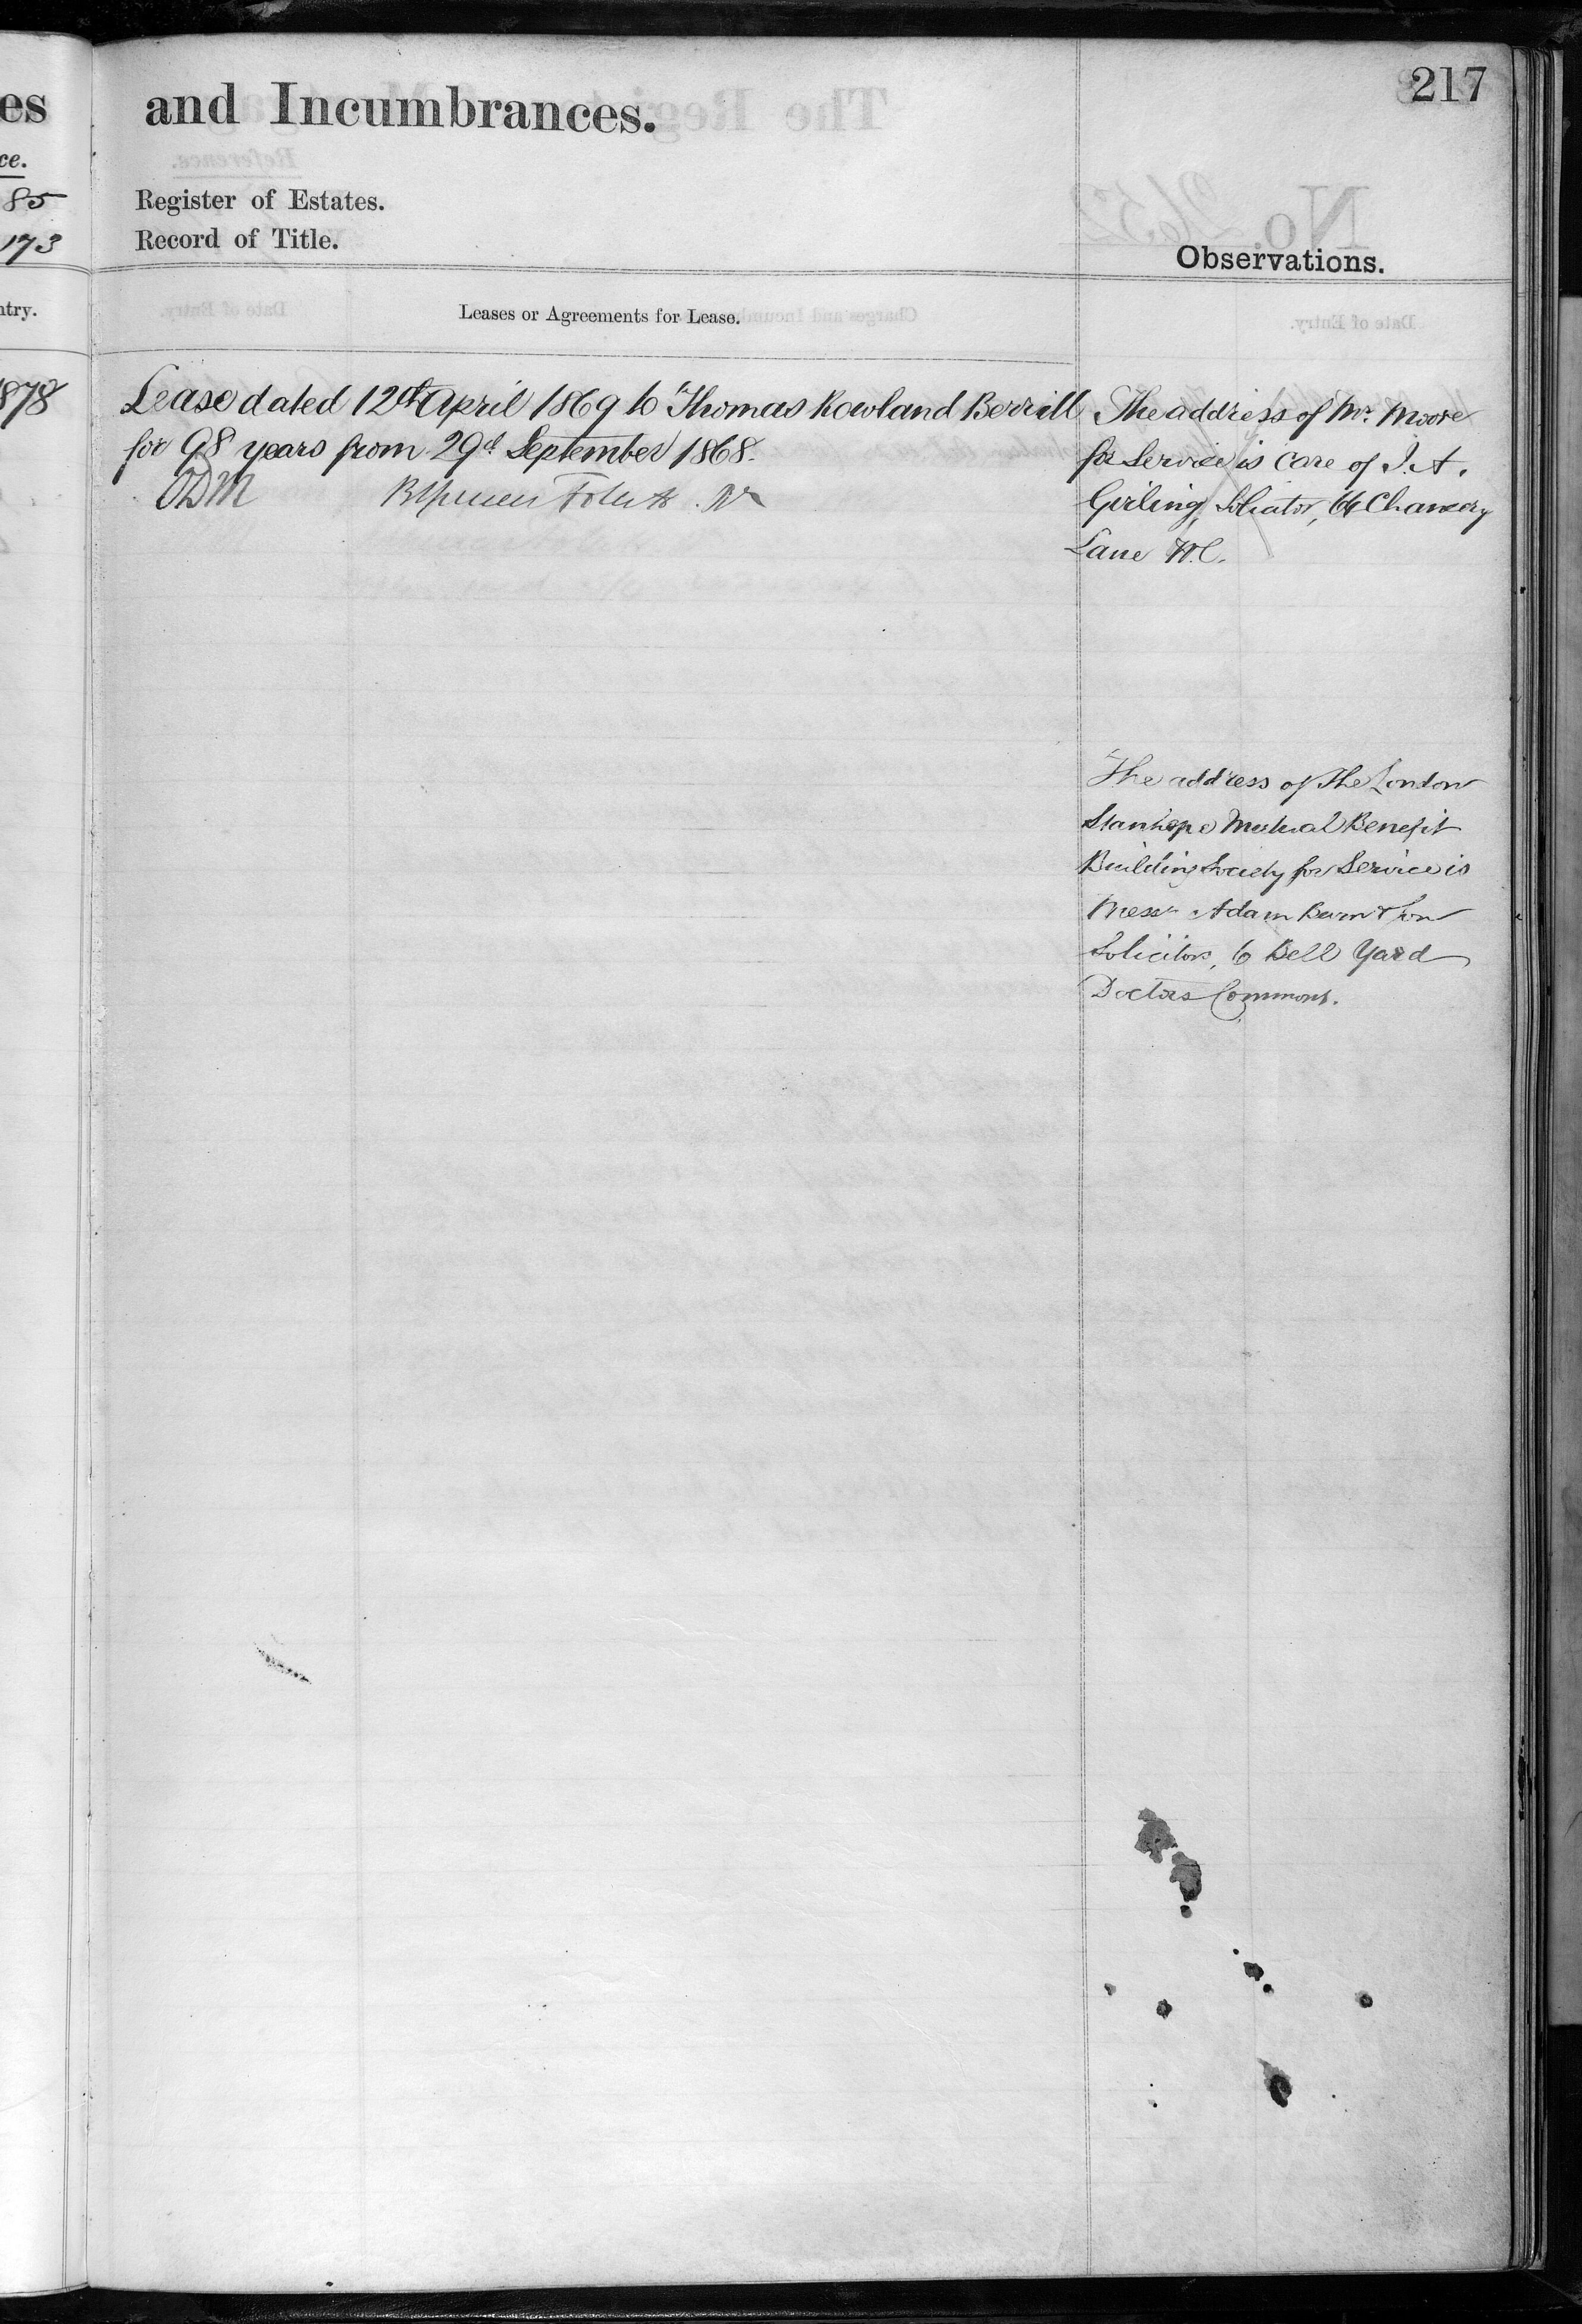 217
es
and Incumbrances.
ce.
85
Register of Estates.
173
Record of Title.
Observations.
ntry.
Leases or Agreements for Lease.
1878
Lease dated 12th April 1869 to Thomas Rowland Berrill
for 98 years from 29th September 1868.
ODM
The address of Mr. Moore
for Service is Care of J. A.
Girling, Solicitor, 66 Chancery
Lane W.C.
The address of The London
Stanhope Mutual Benefit
Building Society for Service is
Messrs Adam Burn & Son
Solicitors, 6 Bell Yard
Doctors Commons.